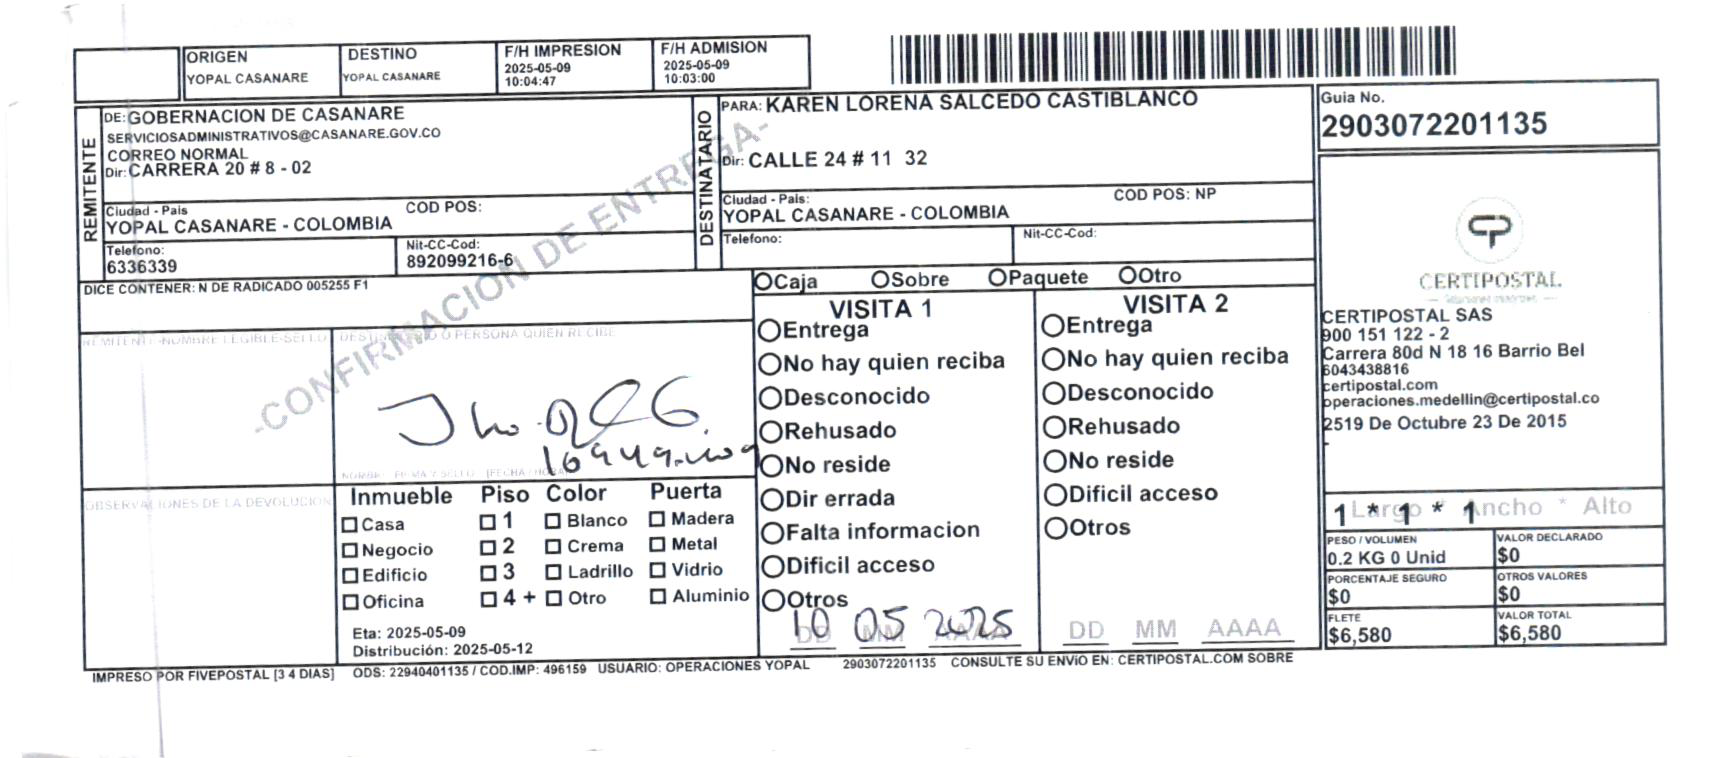 ORIGEN
YOPAL CASANARE
DESTINO
YOPAL CASANARE
F/H IMPRESION
2025-05-09
10:04:47
F/H ADMISION
2025-05-09
10:03:00
REMITENTE
DE: GOBERNACION DE CASANARE
SERVICIOSADMINISTRATIVOS@CASANARE.GOV.CO
CORREO NORMAL
Dir: CARRERA 20 # 8 - 02
Ciudad - Pais
COD POS:
YOPAL CASANARE - COLOMBIA
Telefono:
6336339
Nit-CC-Cod:
892099216-6
DESTINATARIO
PARA: KAREN LORENA SALCEDO CASTIBLANCO
Dir: CALLE 24 # 11 32
Ciudad - Pais:
COD POS: NP
YOPAL CASANARE - COLOMBIA
Telefono:
Nit-CC-Cod:
Guia No.
2903072201135
-CONFIRMACION DE ENTREGA-
DICE CONTENER: N DE RADICADO 005255 F1
REMITENTE-NOMBRE LEGIBLE-SELLO
DESTINATARIO O PERSONA QUIEN RECIBE
NOMBRE FIRMA Y SELLO [FECHA / HORA]
OBSERVACIONES DE LA DEVOLUCION
Inmueble Piso Color Puerta
Casa 1 Blanco Madera
Negocio 2 Crema Metal
Edificio 3 Ladrillo Vidrio
Oficina 4 + Otro Aluminio
Eta: 2025-05-09
Distribución: 2025-05-12
Caja Sobre Paquete Otro
VISITA 1
Entrega
No hay quien reciba
Desconocido
Rehusado
No reside
Dir errada
Falta informacion
Dificil acceso
Otros
10 05 2025
DD MM AAAA
VISITA 2
Entrega
No hay quien reciba
Desconocido
Rehusado
No reside
Dificil acceso
Otros
DD MM AAAA
CERTIPOSTAL
CERTIPOSTAL SAS
900 151 122 - 2
Carrera 80d N 18 16 Barrio Bel
6043438816
certipostal.com
operaciones.medellin@certipostal.co
2519 De Octubre 23 De 2015
-
Largo * Ancho * Alto
1 * 1 * 1
PESO / VOLUMEN
0.2 KG 0 Unid
VALOR DECLARADO
$0
PORCENTAJE SEGURO
$0
OTROS VALORES
$0
FLETE
$6,580
VALOR TOTAL
$6,580
IMPRESO POR FIVEPOSTAL [3 4 DIAS] ODS: 22940401135 / COD.IMP: 496159 USUARIO: OPERACIONES YOPAL 2903072201135 CONSULTE SU ENVIO EN: CERTIPOSTAL.COM SOBRE